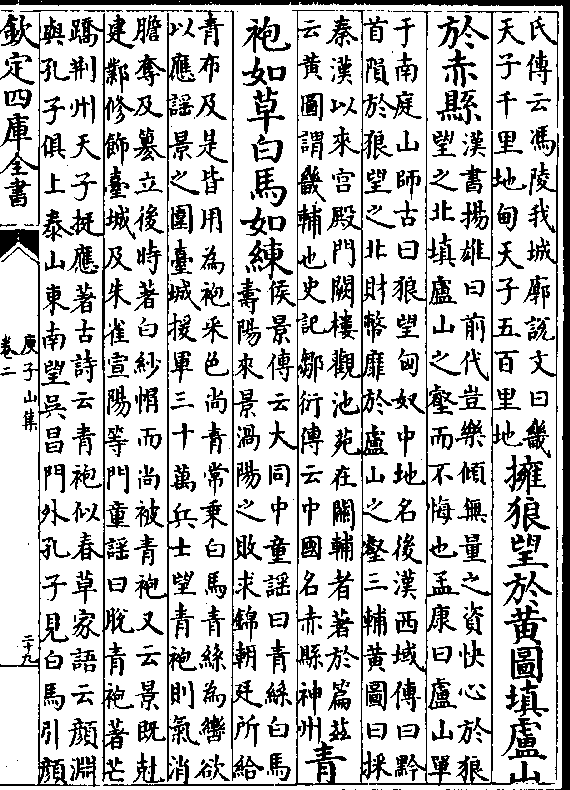 氏傳云馮陵我城廓說文曰畿
天子千里地甸天子五百里地
擁狼望於黃圖填盧山
於赤縣
漢書揚雄曰前代豈樂傾無量之資快心於狼
望之北填盧山之壑而不悔也孟康曰盧山單
于南庭山師古曰狼望匈奴中地名後漢西域傳曰黔
首隕於狼望之北財幣靡於盧山之壑三輔黃圖曰採
秦漢以來宮殿門闕樓觀池苑在關輔者著於篇兹
云黃圖謂畿輔也史記鄒衍傳云中國名赤縣神州
青
袍如草白馬如練
侯景傳云大同中童謡曰青絲白馬
壽陽來景渦陽之敗求錦朝廷所給
青布及是皆用為袍采色尚青常乗白馬青絲為轡欲
以應謡景之圍臺城援軍三十萬兵士望青袍則氣消
膽奪及簒立後時著白紗㡌而尚被青袍又云景既尅
建鄴修飾臺城及朱雀宣陽等門童謡曰脫青袍著芒
蹻荆州天子挺應著古詩云青袍似春草家語云顔淵
與孔子俱上泰山東南望吳昌門外孔子見白馬引顔
欽定四庫全書
庾子山集
卷二
二十九